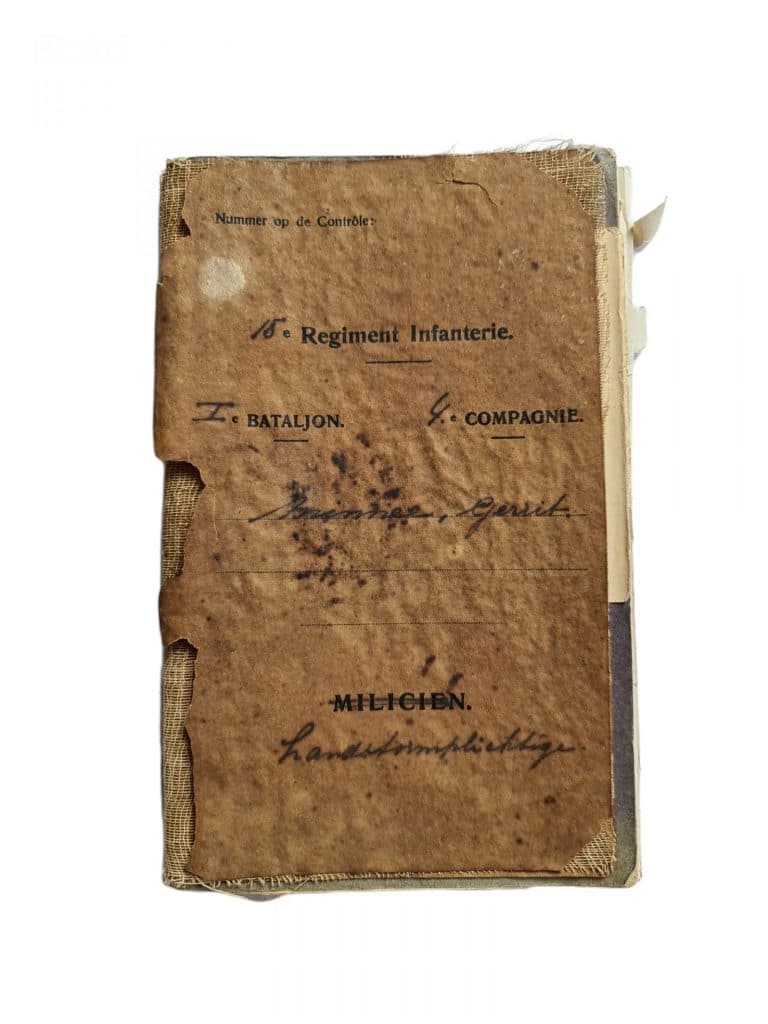 Nummer op de Contrôle:
15e Regiment Infanterie.
Ie BATALJON. 4.e COMPAGNIE.
Minnee, Gerrit.
MILICIEN.
Landstormplichtige.